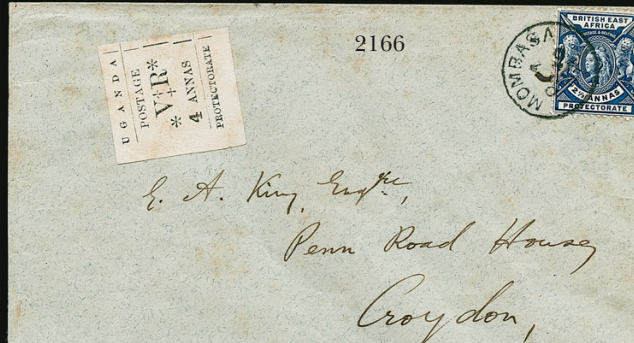 2166
UGANDA
POSTAGE
*V+R*
4 ANNAS
PROTECTORATE
MOMBASA
BRITISH EAST
AFRICA
2½ ANNAS
PROTECTORATE
E. A. King, Esqre,
Penn Road House,
Croydon,